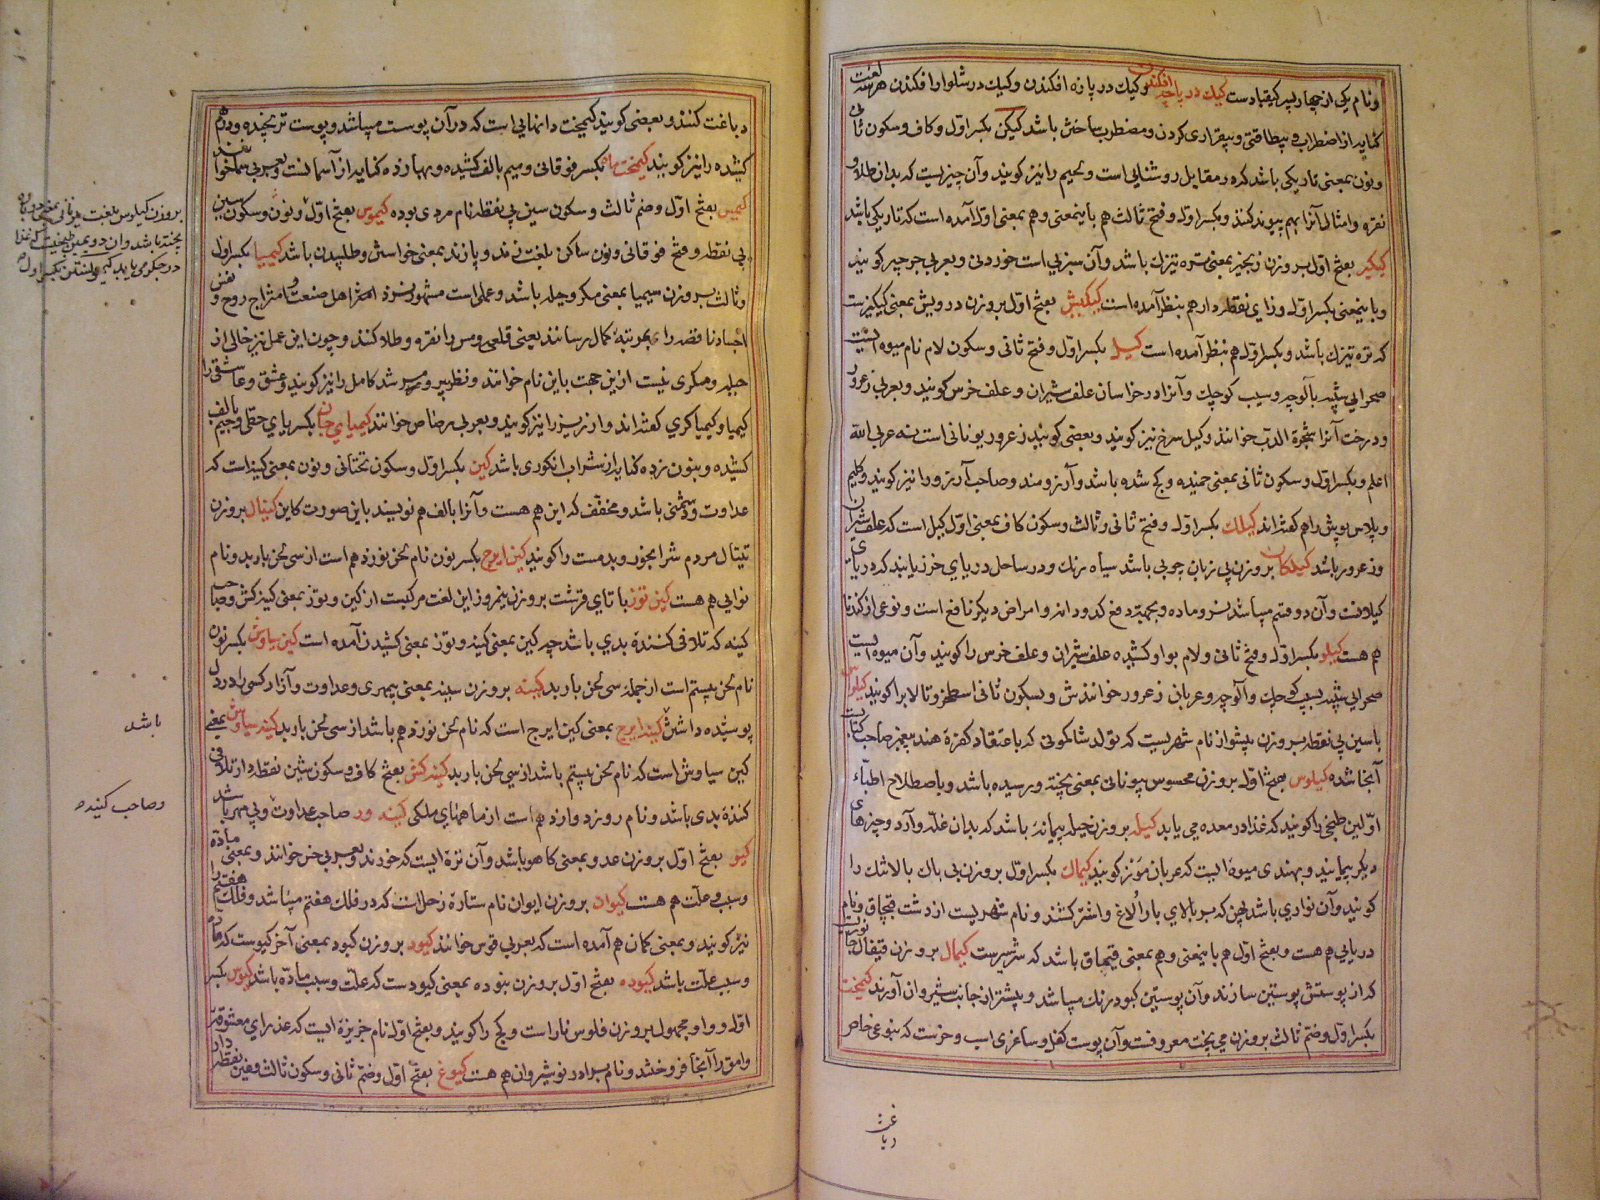 و نام یکی از چهار پسر کیقباد ست کیك در پاچه افکندن و کیك در پاره افکندن و کیك در شلوار افکندن هر سه لغت
کنایه از اضطراب و بیطاقتی و بیقراری کردن و مضطرب ساختن باشد کیکن بکسر اول و کاف و سکون ثانی
و نون بمعنی تاریکی باشد که در مقابل روشنایی است و لحیم را نیز کویند و آن چیزیست که بدان طلا و
نقره و امثال آنرا بهم پیوند کنند و بکسر اول و فتح ثالث هم باینمعنی و هم بمعنی اول آمده است که تاریکی باشد
کیکیر بفتح اول بر وزن زنجیر بمعنی تره تیزك باشد و آن سبزیی است خوردنی و بعربی جرجیر کویند
و باینمعنی بکسر اول و زای نقطه دار هم بنظر آمده است کیکیش بفتح اول بر وزن درویش بمعنی کیکیز ست
که تره تیزك باشد و بکسر اول هم بنظر آمده است کیل بکسر اول و فتح ثانی و سکون لام نام میوه ایست
صحرایی شبیه بآلوچه و سیب کوچك و آنرا در خراسان علف شیران و علف خرس کویند و بعربی زعرور
و درخت آنرا شجرة الدب خوانند و کیل سرخ نیز کویند و بعضی کویند زعرور یونانی است نه عربی الله
اعلم و بکسر اول و سکون ثانی بمعنی خمیده و کج شده باشد و آرزومند و صاحب آرزو را نیز کویند و کلیم
و پلاس پوش را هم کفته اند کیلك بکسر اول و فتح ثانی و ثالث و سکون کاف بمعنی اول کیل است که علف شیران
و زعرور باشد کیلکان بر وزن بی زبان چوبی باشد سیاه رنك و در ساحل دریای خزر یابند که دریای
کیلانست و آن دو قسم میباشد نر و ماده و بجهت دفع کدودانه و امراض دیکر نافع است و نوعی از کندنا
هم هست کیلو بکسر اول و فتح ثانی و لام بواو کشیده علف شیران و علف خرس را کویند و آن میوه ایست
صحرایی شبیه بسیب کوچك و آلوچه و عربان زعرور خوانندش و بسکون ثانی اسطخر و تالاب را کویند کیلواس
باسین بی نقطه بر وزن پیشواز نام شهریست که تولد شاکمونی که باعتقاد کفره هند پیغمبر صاحب کتابست
آنجا شده کیلوس بفتح اول بر وزن محسوس بیونانی بمعنی پخته و رسیده باشد و باصطلاح اطباء
اولین طبخی را کویند که غذا در معده می یابد کیله بر وزن حیله پیمانه باشد که بدان غله و آرد و چیزهای
دیکر پیمایند و بهندی میوه ایست که عربان موز کویند کیماك بکسر اول بر وزن بی باك بالاتنك را
کویند و آن نواری باشد پهن که بر بالای بار الاغ و اشتر کشند و نام شهریست از دشت قبچاق و نام
دریایی هم هست و بفتح اول هم باینمعنی و هم بمعنی قیماق باشد که سرشیرست کیمال بر وزن قیفال جانوریست
که از پوستش پوستین سازند و آن پوستین کبود رنك میباشد و بیشتر از جانب شیروان آورند کیمخت
بکسر اول و ضم ثالث بر وزن می پخت معروفست و آن پوست کفل و ساغری اسب و خرست که بنوعی خاص
دباغت
دباغت کنند و بعضی کویند کیمخت دانهایی است که در آن پوست میباشد و پوست ترنجیده و درهم
کشیده را نیز کویند کیمخت ماه بکسر فوقانی و میم بالف کشیده و بها زده کنایه از آسمانست و بعربی سما خوانند
کیمس بفتح اول و ضم ثالث و سکون سین بی نقطه نام مردی بوده کیموس بفتح اول و نون و سکون سین
بی نقطه و فتح فوقانی و نون ساکن بلغت زند و پازند بمعنی خواستن و طلبیدن باشد کیمیا بکسر اول
و ثالث بر وزن سیمیا بمعنی مکر و حیله باشد و عملی است مشهور نزد اهل صنعت که بامتزاج روح و نفس
اجساد ناقصه را بمرتبه کمال رسانند یعنی قلعی و مس را نقره و طلا کنند و چون این عمل نیز خالی از
حیله و مکری نیست از این جهت باین نام خوانند و نظر پیر و مرشد کامل را نیز کویند و عشق و عاشقی را
کیمیا و کیمیاکری کفته اند و ارزیز را نیز کویند و بعربی رصاص خوانند کیمیای جان بکسر یای حطی و جیم بالف
کشیده و بنون زده کنایه از شراب انکوری باشد کین بکسر اول و سکون تحتانی و نون بمعنی کینه است که
عداوت و دشمنی باشد و مخفف که این هم هست و آنرا بالف هم نویسند باین صورت کاین کینال بر وزن
تیتال مردم شرابخور و بدمست را کویند کین ایرج بکسر نون نام لحن نوزدهم است از سی لحن باربد و نام
نوایی هم هست کین توز با تای قرشت بر وزن نیمروز این لغت مرکبست از کین و توز بمعنی کینه کش و صاحب
کینه که تلافی کننده بدی باشد چه کین بمعنی کینه و توز بمعنی کشیدن آمده است کین سیاوش بکسر نون
نام لحن بیستم است از جمله سی لحن باربد کینه بر وزن سینه بمعنی بیمهری و عداوت و آزار کسی را در دل
پوشیده داشتن کینه ایرج بمعنی کین ایرج است که نام لحن نوزدهم باشد از سی لحن باربد کینه سیاوش بمعنی
کین سیاوش است که نام لحن بیستم باشد از سی لحن باربد کینه کش بفتح کاف و سکون شین نقطه دار تلافی
کننده بدی باشد و نام روز دوازدهم است از ماههای ملکی کینه ور صاحب عداوت و بی مهر باشد
کیو بفتح اول بر وزن عدو بمعنی کاهو باشد و آن تره ایست که خورند و بعربی خس خوانند و بمعنی ماده
و سبب و علت هم هست کیوان بر وزن ایوان نام ستاره زحل است که در فلك هفتم میباشد و فلك هفتم را
نیز کویند و بمعنی کمان هم آمده است که بعربی قوس خوانند کیود بر وزن کبود بمعنی آخر کیوست که ماده
و سبب علت باشد کیوده بفتح اول بر وزن نبوده بمعنی کیودست که علت و سبب ماده باشد کیوس بکسر
اول و واو مجهول بر وزن فلوس ناراست و کج را کویند و بفتح اول نام جزیره ایست که عذرای معشوقه
وامق را آنجا فروختند و نام برادر نوشیروان هم هست کیوغ بفتح اول و ضم ثانی و سکون ثالث و غین نقطه دار
بر وزن کیلوس بلغت یونانی بمعنی
باشد
و صاحب کینه